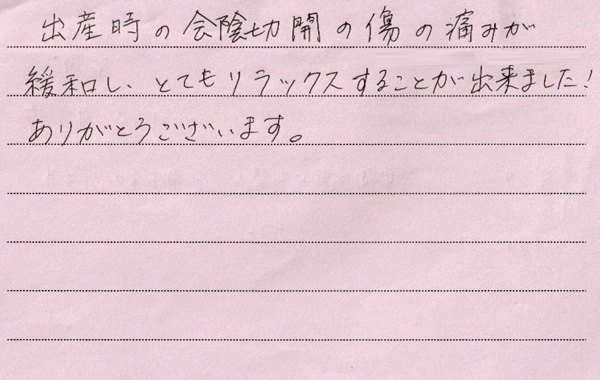 出産時の会陰切開の傷の痛みが
緩和し、とてもリラックスすることが出来ました!
ありがとうございます。